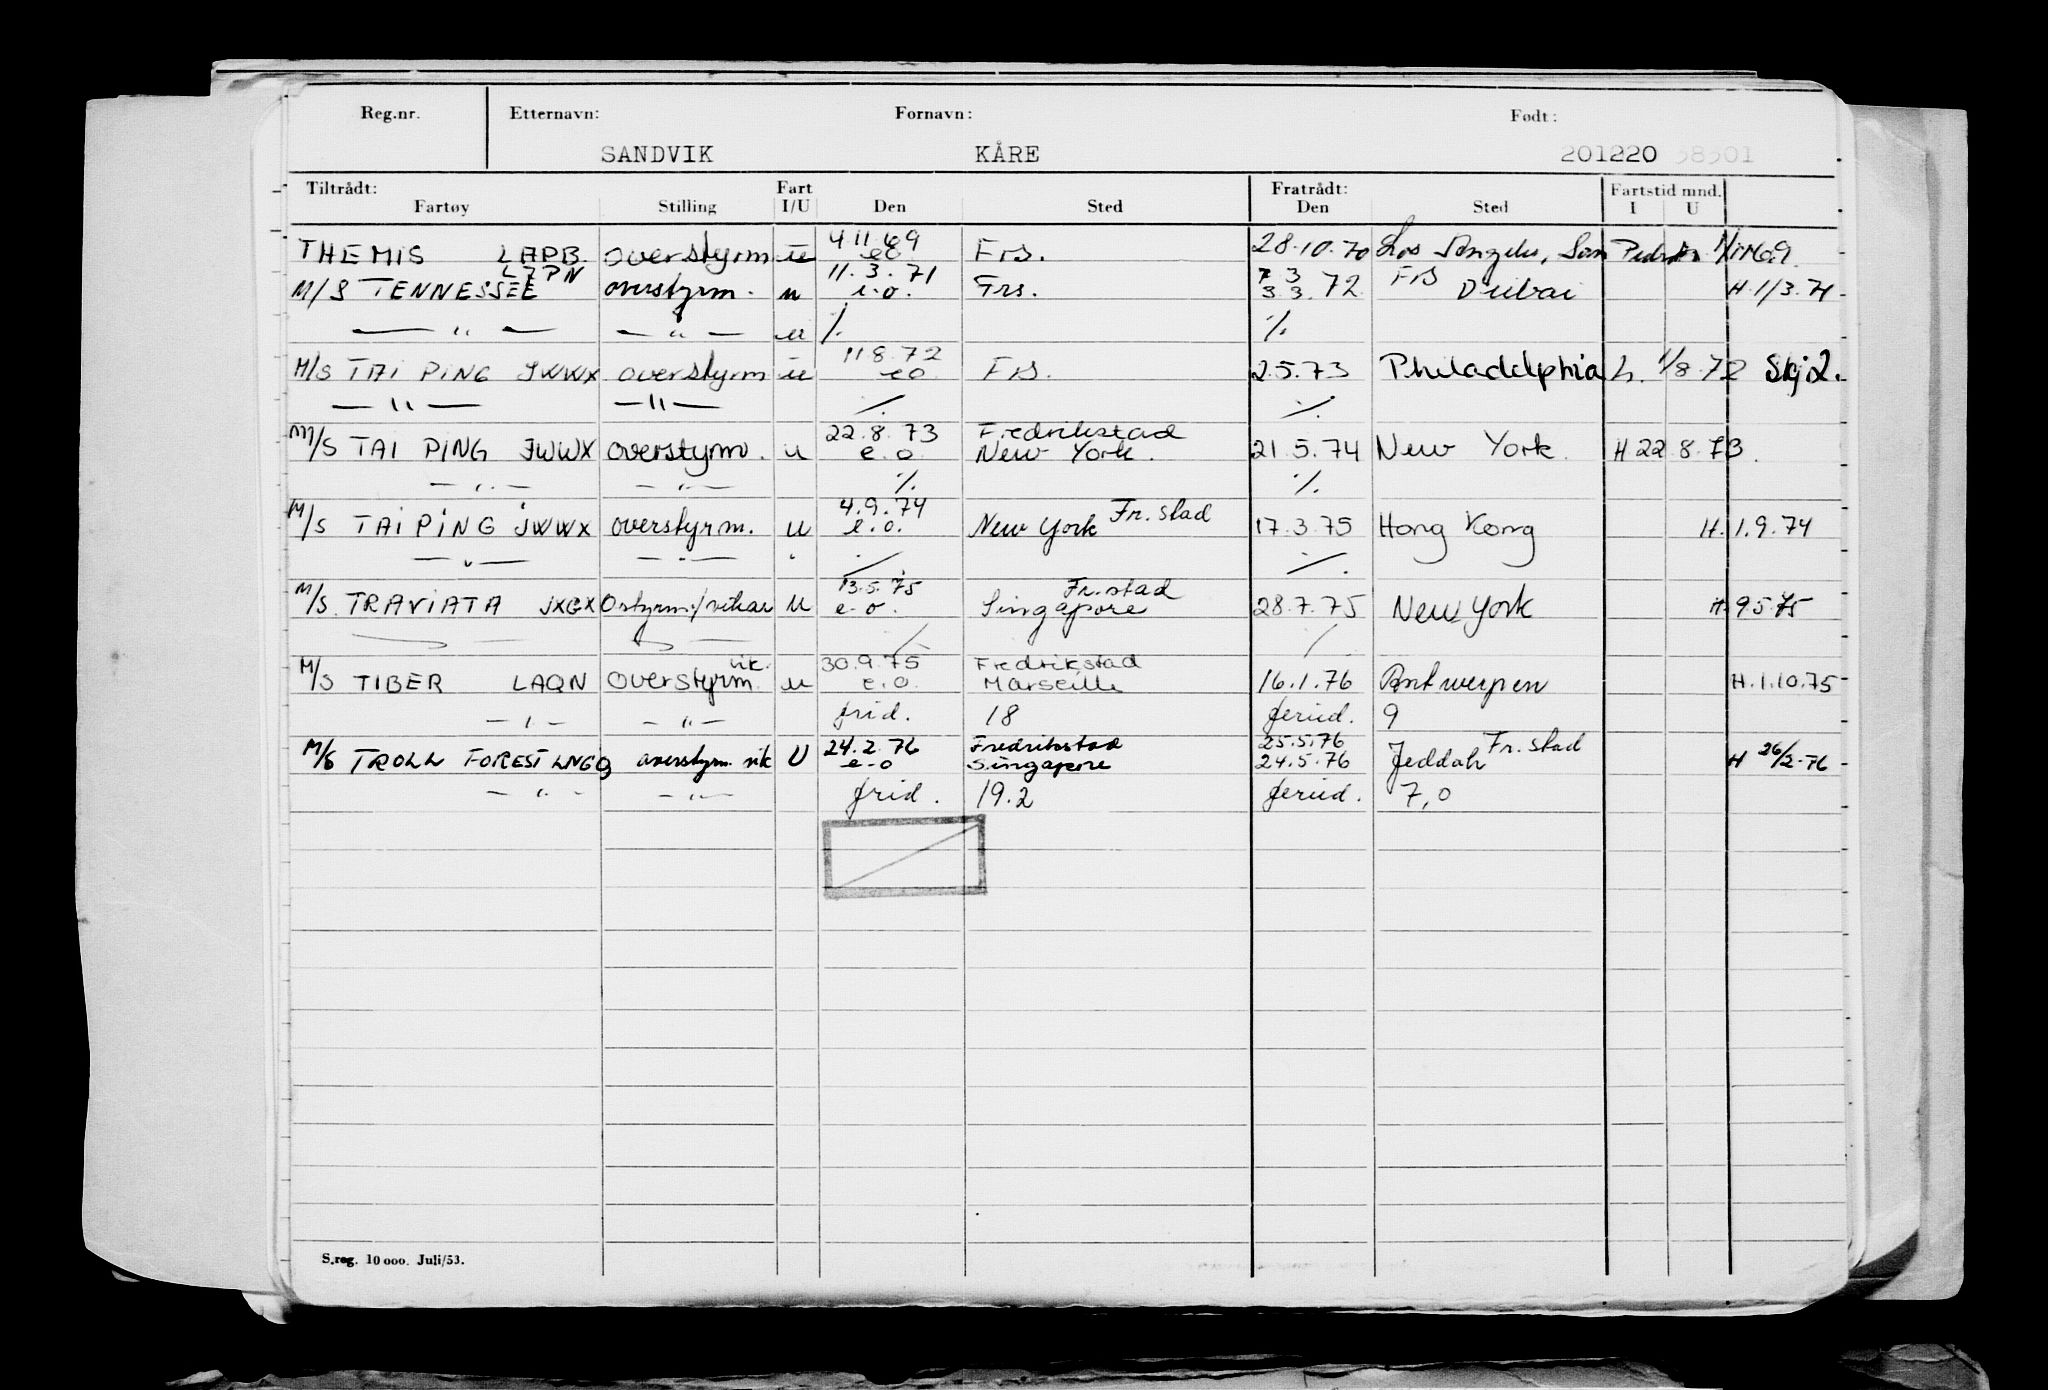 Reg.nr. Etternavn: Fornavn: Født:
SANDVIK KÅRE 201220 38301
Tiltrådt: Fart Fratrådt: Fartstid mnd.
Fartøy Stilling I/U Den Sted Den Sted I U
4.11.69
THEMIS LAPB. overstyrm u eo Frs. 28.10.70 Los Angeles, San Pedro
LJPN 11.3.71 7 3 Frs
M/S TENNESSEE overstyrm. u e.o. Frs. 3.3.72 Dubai H.1/3.71
— " — — " — u ./. ./.
11 8.72
M/S TAI PING JWWX overstyrm u eo Frs. 2.5.73 Philadelphia h. 1/8.72 Skj2.
— " — — " — ./. ./.
22.8.73 Fredrikstad
M/S TAI PING JWWX overstyrm. u e.o. New York. 21.5.74 New York. H.22.8.73.
— " — — " — ./. ./.
4.9.74 Fr.stad
M/S TAIPING JWWX overstyrm. u e.o. New York 17.3.75 Hong Kong H.1.9.74
— " — — " — " ./. ./.
13.5.75 Fr.stad
M/S. TRAVIATA JXGX Ostyrm./vikar u e.o. Singapore 28.7.75 New York H.9575
vik. 30.9.75 Fredrikstad
M/S TIBER LAQN Overstyrm. u e.o. Marseille 16.1.76 Antwerpen H.1.10.75
— " — — " — frid. 18 feriid. 9
24.2.76 Fredrikstad 25.5.76 Fr.stad
M/S TROLL FOREST LNGQ overstyrm. vik U e-o Singapore 24.5.76 Jeddah H 26/2-76
— " — — " — frid. 19.2 feriid. 7,0
S.reg. 10 000. Juli/53.